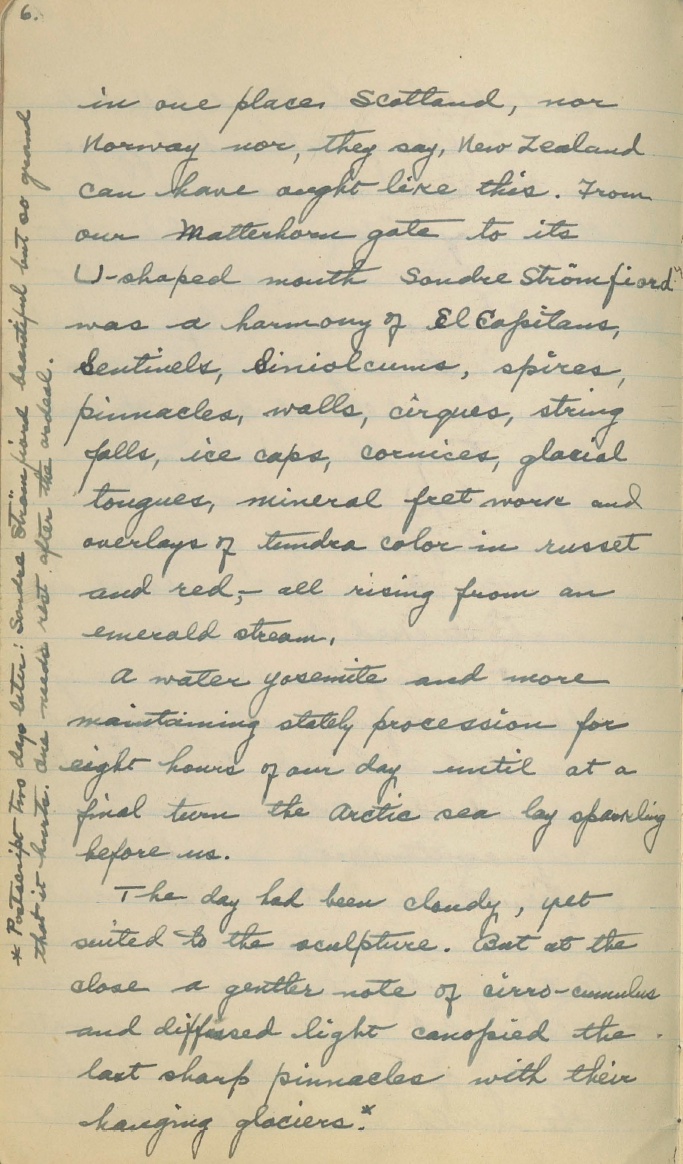 6.
in one place. Scotland, nor
Norway nor, they say, New Zealand
can have ought like this. From
our Matterhorn gate to its
U-shaped mouth Sondre Strömfiord
was a harmony of El Capitans,
Sentinels, Siniolcums, spires,
pinnacles, walls, cirques, string
falls, ice caps, cornices, glacial
tongues, mineral fret work and
overlays of tundra color in russet
and red,- all rising from an
emerald stream.
A water yosemite and more
maintaining stately procession for
eight hours of our day until at a
final turn the Arctic sea lay sparkling
before us.
The day had been cloudy, yet
suited to the sculpture. But at the
close a gentler note of cirro-cumulus
and diffused light canopied the
last sharp pinnacles with their
hanging glaciers.*
* Postscript two days later: Sondre Strömfiord beautiful but so grand
that it hurts. One needs rest after the ordeal.